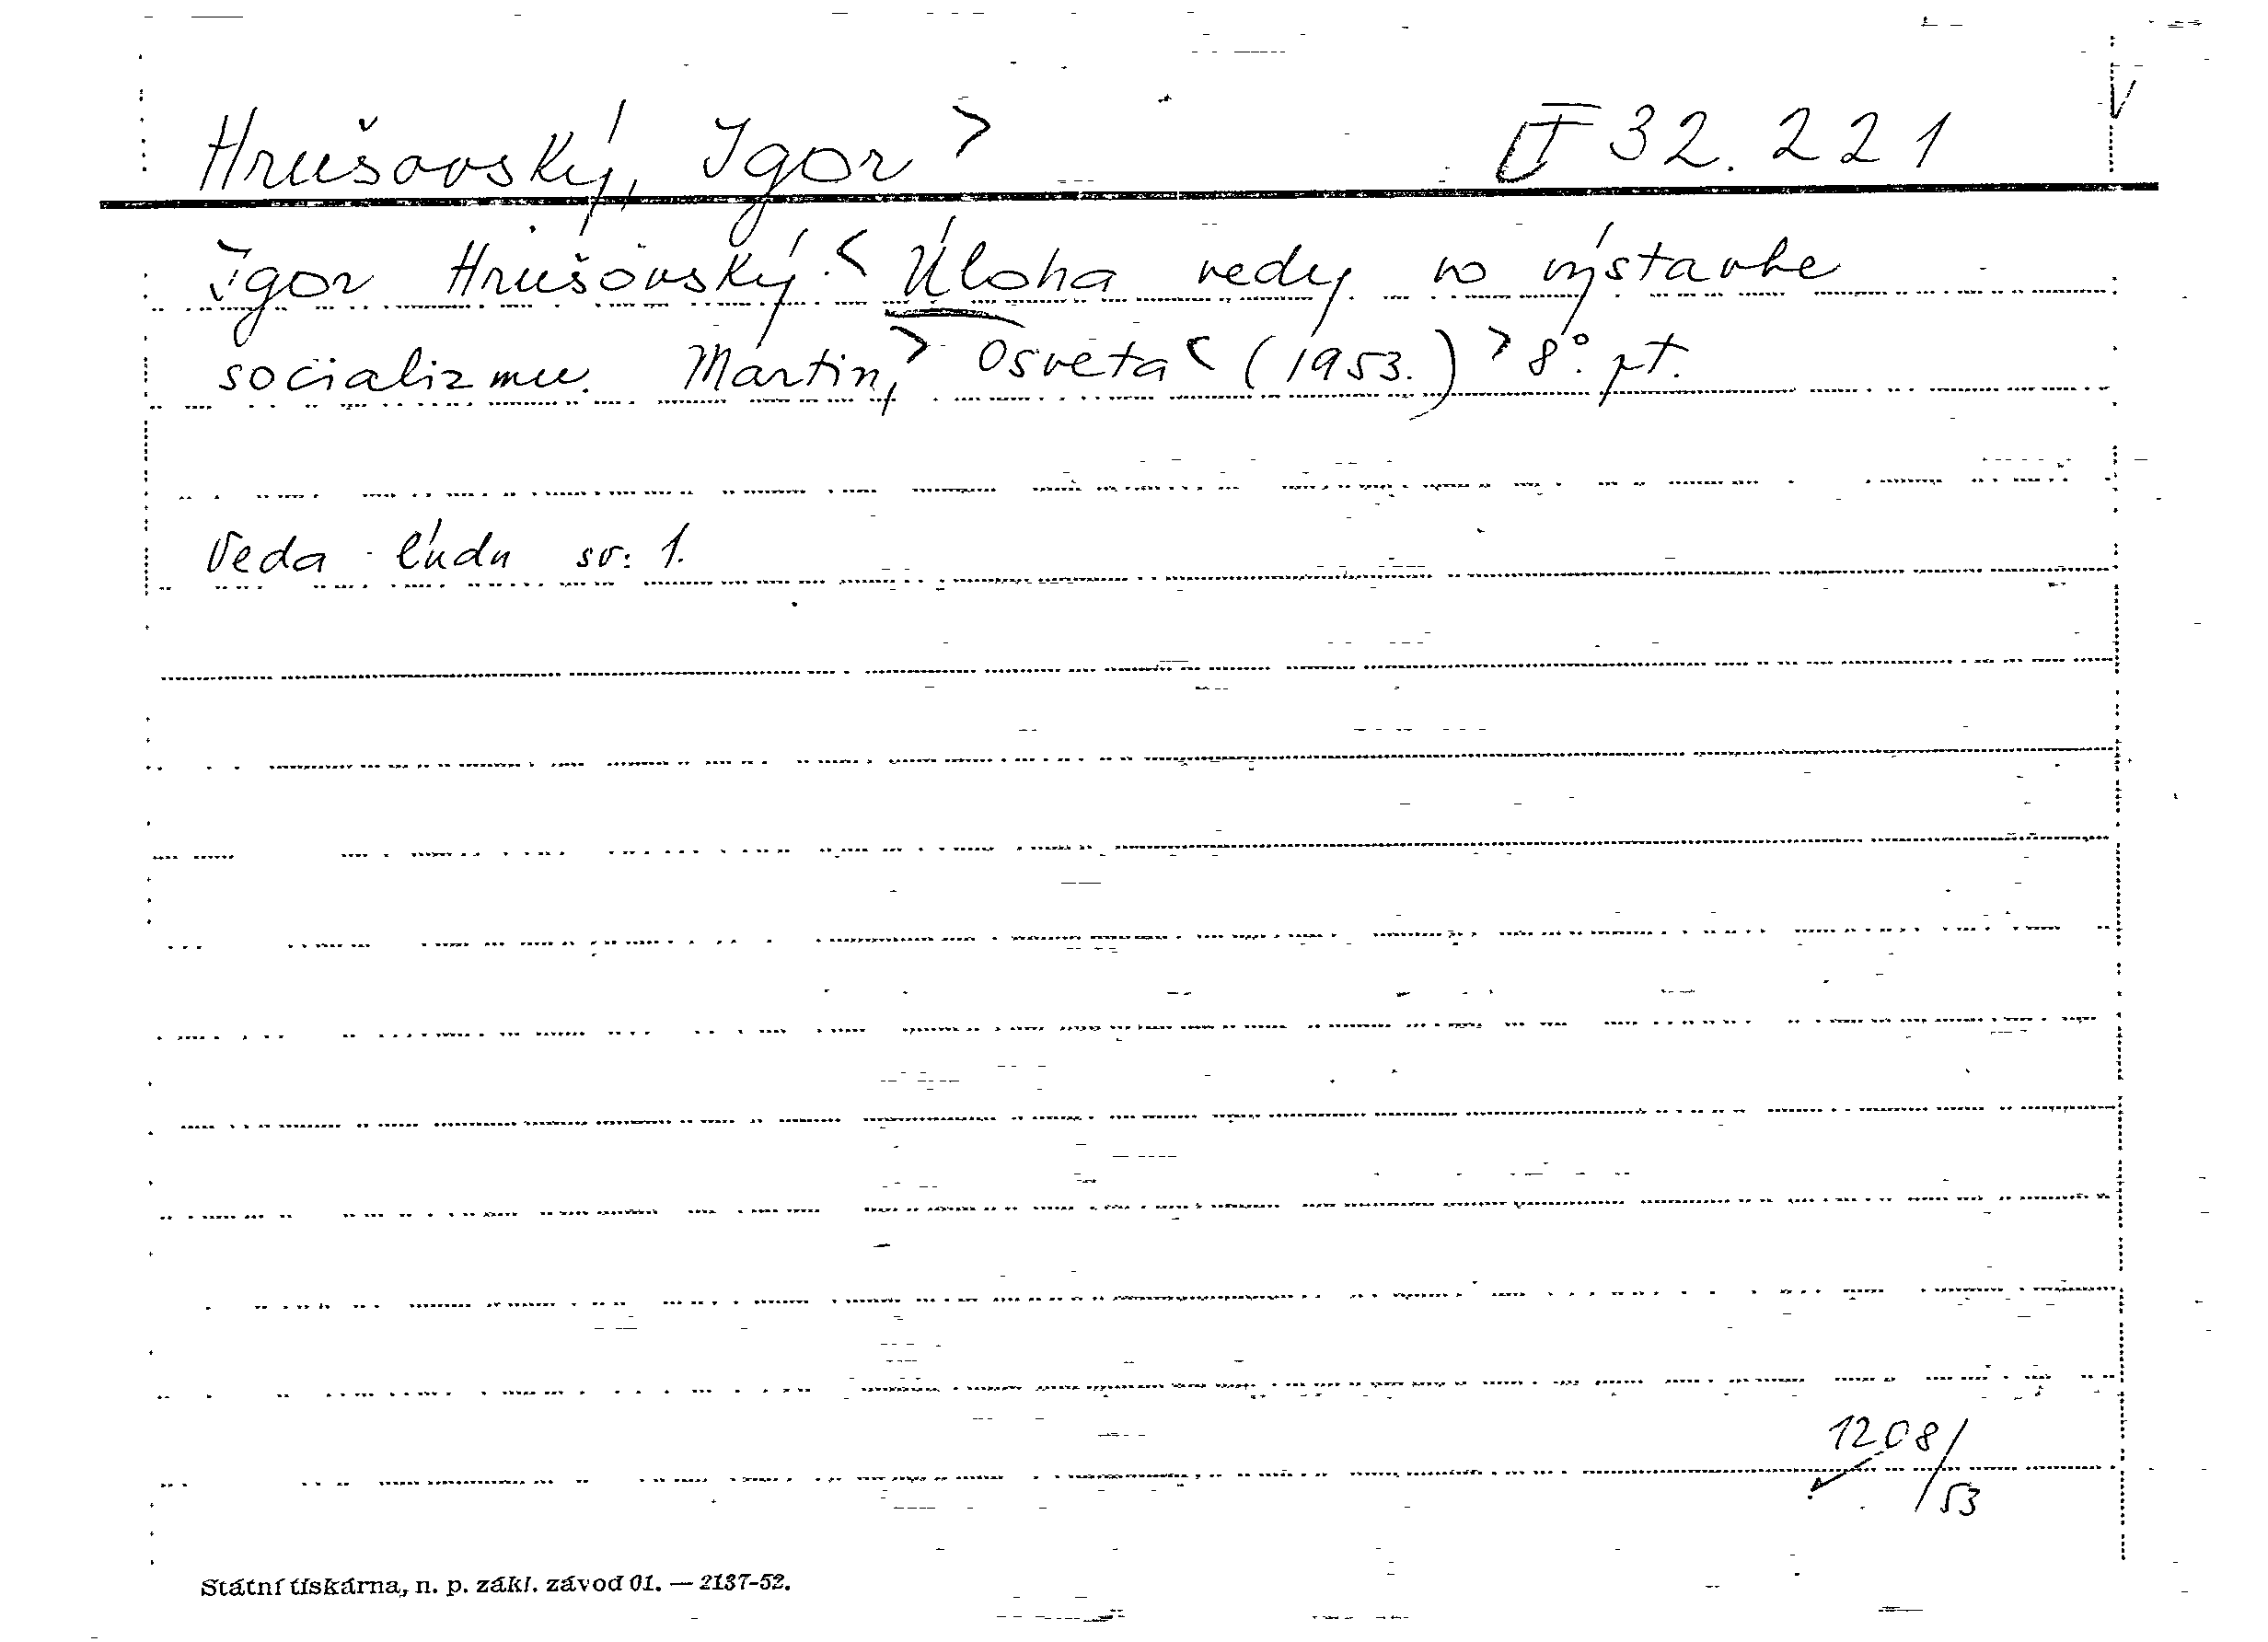 Hrušovský, Igor > II 32.221
Igor Hrušovský: < Úloha vedy vo výstavbe
socializmu. Martin, > Osveta < (1953.) > 8°. pt.
Veda ľudu sv: 1.
1208/
53
Státní tiskárna, n. p. zákl. závod 01. — 2137-52.